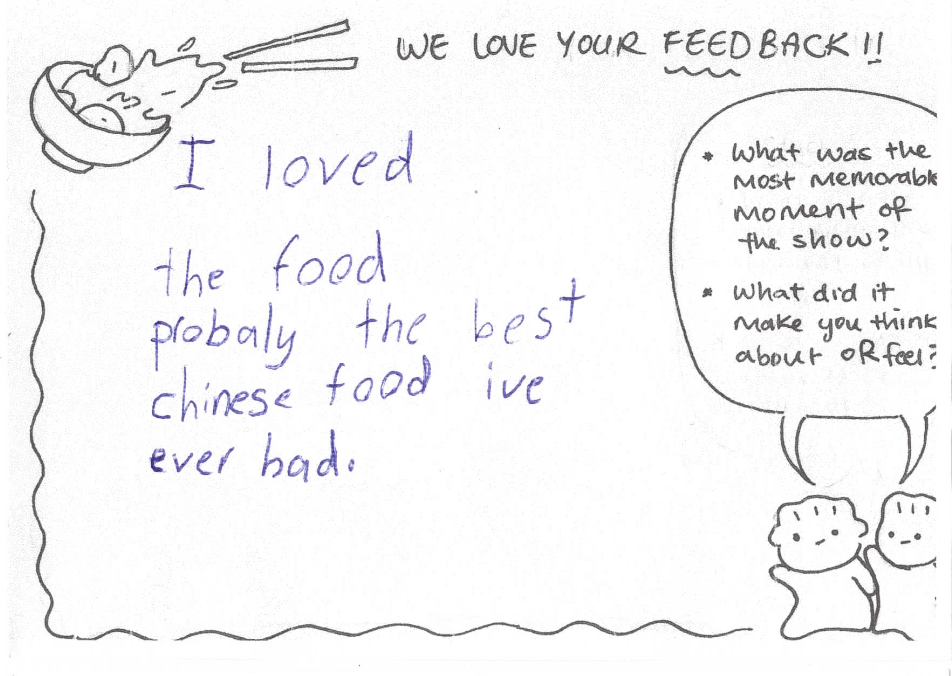 WE LOVE YOUR FEEDBACK!!
I loved
the food
probaly the best
chinese food ive
ever had.
* What was the
most memorable
moment of
the show?
* What did it
make you think
about oR feel?